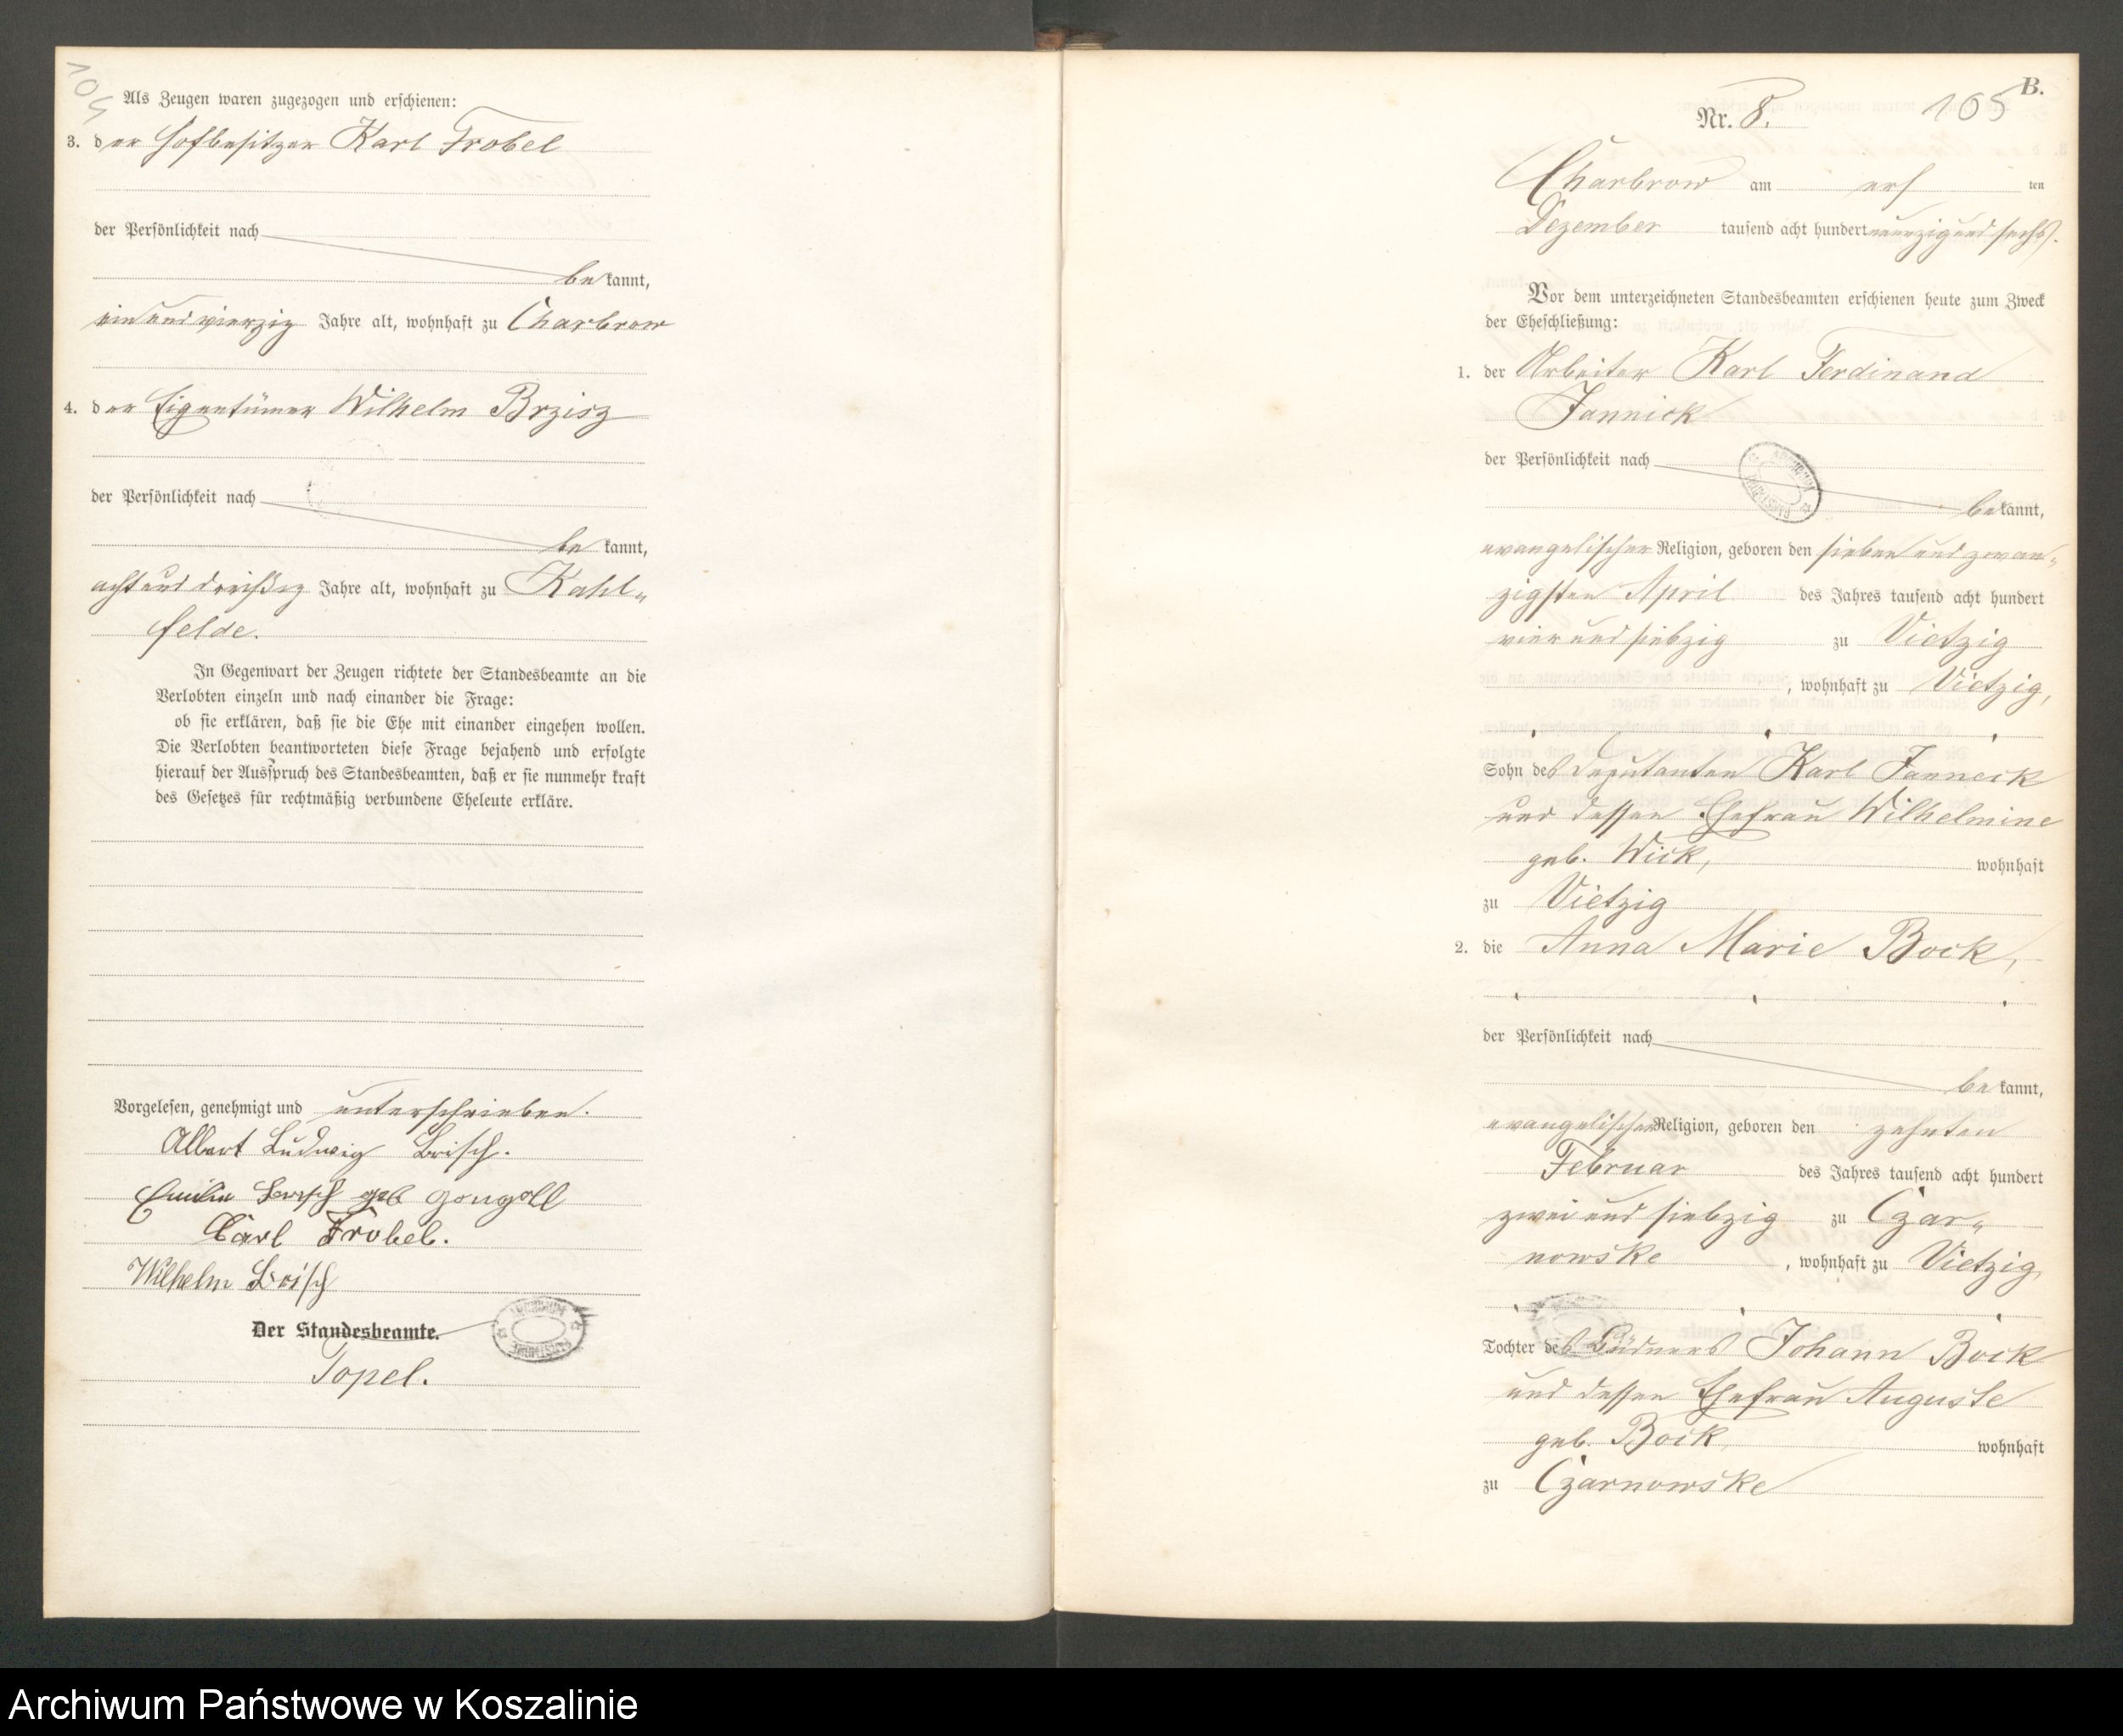 104
Als Zeugen waren zugezogen und erschienen:
3. der Hofbesitzer Karl Frobel
der Persönlichkeit nach
bekannt,
ein und vierzig Jahre alt, wohnhaft zu Charbrow
4. der Eigentümer Wilhelm Brzisz
der Persönlichkeit nach
be kannt,
acht und dreißig Jahre alt, wohnhaft zu Kahl„
felde.
In Gegenwart der Zeugen richtete der Standesbeamte an die
Verlobten einzeln und nach einander die Frage:
ob sie erklären, daß sie die Ehe mit einander eingehen wollen.
Die Verlobten beantworteten diese Frage bejahend und erfolgte
hierauf der Ausspruch des Standesbeamten, daß er sie nunmehr kraft
des Gesetzes für rechtmäßig verbundene Eheleute erkläre.
Vorgelesen, genehmigt und unterschrieben.
Albert Ludwig Brisch.
Emilie Brisch geb Gongoll
Carl Frobel.
Wilhelm Brisch
Der Standesbeamte.
Topel.
B.
Nr. 8. 105
Charbrow am ersten
Dezember tausend acht hundert neunzig und sechs.
Vor dem unterzeichneten Standesbeamten erschienen heute zum Zweck
der Eheschließung:
1. der Arbeiter Karl Ferdinand
Jannick
der Persönlichkeit nach
bekannt,
evangelischer Religion, geboren den sieben und zwan„
zigsten April des Jahres tausend acht hundert
vier und siebzig zu Vietzig
, wohnhaft zu Vietzig,
Sohn des Deputanten Karl Janneck
und dessen Ehefrau Wilhelmine
geb. Wick, wohnhaft
zu Vietzig
2. die Anna Marie Bock,
der Persönlichkeit nach
be kannt,
evangelischer Religion, geboren den zehnten
Februar des Jahres tausend acht hundert
zwei und siebzig zu Czar„
nowske , wohnhaft zu Vietzig,
Tochter des Büdners Johann Bock
und dessen Ehefrau Auguste
geb. Bock, wohnhaft
zu Czarnowske
Archiwum Państwowe w Koszalinie